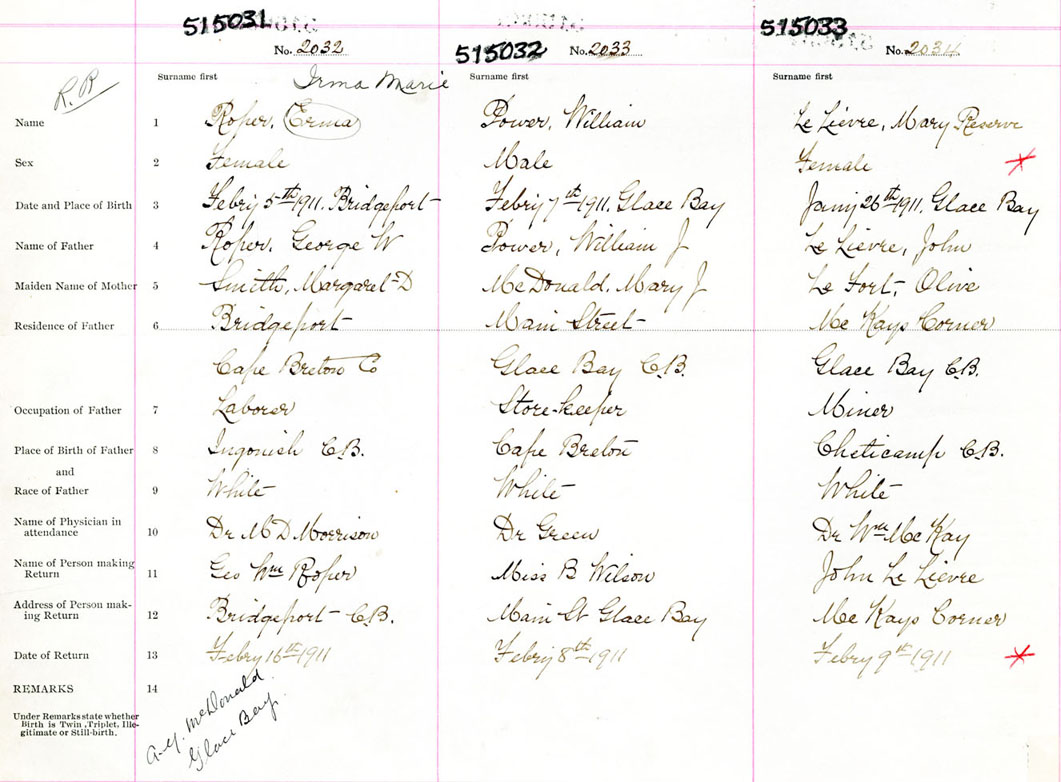 515031
No. 2032
515032 No. 2033
515033
No. 2034
Surname first
Irma Marie
Surname first
Surname first
R.R
Name 1 Roper, Erma Power, William Le Lievre, Mary Reserve
Sex 2 Female Male Female
Date and Place of Birth 3 Febry 5th 1911. Bridgeport Febry 7th 1911. Glace Bay Jany 26th 1911. Glace Bay
Name of Father 4 Roper, George W Power, William J Le Lievre, John
Maiden Name of Mother 5 Smith, Margaret D McDonald, Mary J Le Fort, Olive
Residence of Father 6 Bridgeport Main Street Mc Kays Corner
Cape Breton Co Glace Bay C.B. Glace Bay C.B.
Occupation of Father 7 Laborer Store-keeper Miner
Place of Birth of Father 8 Ingonish C.B. Cape Breton Cheticamp C.B.
and
Race of Father 9 White White White
Name of Physician in
attendance 10 Dr M D Morrison Dr Green Dr Wm Mc Kay
Name of Person making
Return 11 Geo Wm Roper Miss B Wilson John Le Lievre
Address of Person mak-
ing Return 12 Bridgeport C.B. Main St Glace Bay Mc Kays Corner
Date of Return 13 Febry 16th 1911 Febry 8th 1911 Febry 9th 1911
REMARKS 14
Under Remarks state whether
Birth is Twin, Triplet, Ille-
gitimate or Still-birth.
McDonald
Glace Bay